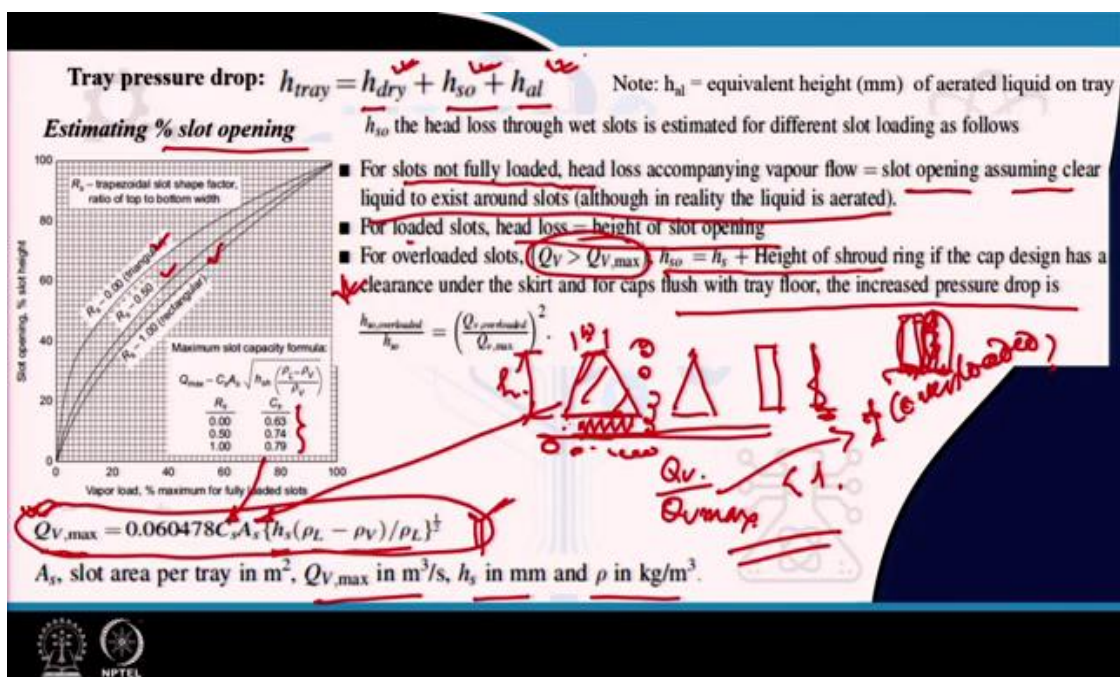 Tray pressure drop: h_tray = h_dry + h_so + h_al
Note: h_al = equivalent height (mm) of aerated liquid on tray
Estimating % slot opening
h_so the head loss through wet slots is estimated for different slot loading as follows
■ For slots not fully loaded, head loss accompanying vapour flow = slot opening assuming clear
liquid to exist around slots (although in reality the liquid is aerated).
■ For loaded slots, head loss = height of slot opening
■ For overloaded slots, Q_V > Q_V,max, h_so = h_s + Height of shroud ring if the cap design has a
clearance under the skirt and for caps flush with tray floor, the increased pressure drop is
h_so,overloaded / h_so = (Q_v,overloaded / Q_v,max)^2.
Slot opening, % slot height
100
80
60
40
20
0
R_s – trapezoidal slot shape factor,
ratio of top to bottom width
R_s – 0.00 (triangular)
R_s – 0.50
R_s – 1.00 (rectangular)
Maximum slot capacity formula:
Q_max – C_s A_s √( h_sh ( (ρ_L – ρ_V) / ρ_V ) )
R_s C_s
0.00 0.63
0.50 0.74
1.00 0.79
0 20 40 60 80 100
Vapor load, % maximum for fully loaded slots
Q_v. / Q_vmax. < 1.
(overloaded)
Q_V,max = 0.060478C_sA_s{h_s(ρ_L − ρ_V)/ρ_L}^½
A_s, slot area per tray in m², Q_V,max in m³/s, h_s in mm and ρ in kg/m³.
NPTEL